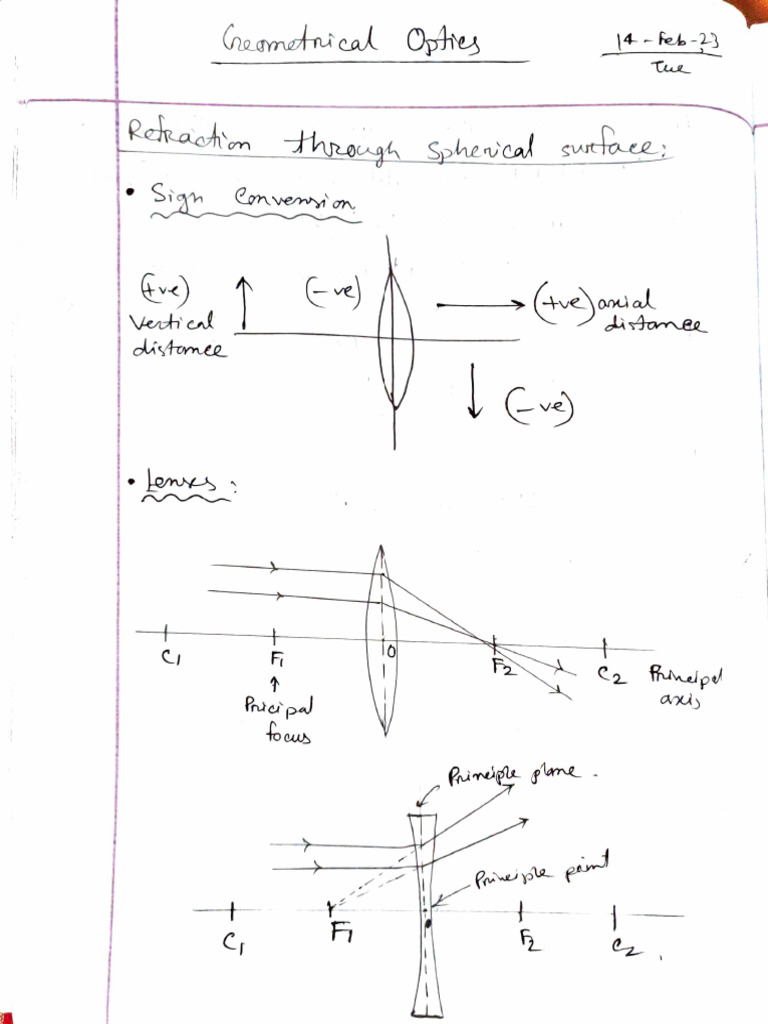 Geometrical Optics
14-Feb-23
Tue
Refraction through spherical surface:
• Sign Convension
(+ve)
vertical
distance
(-ve)
(+ve) axial
distance
(-ve)
• Lenses:
C1 F1 O F2 C2 Principal
axis
Pricipal
focus
Principle plane.
Principle point
C1 F1 F2 C2